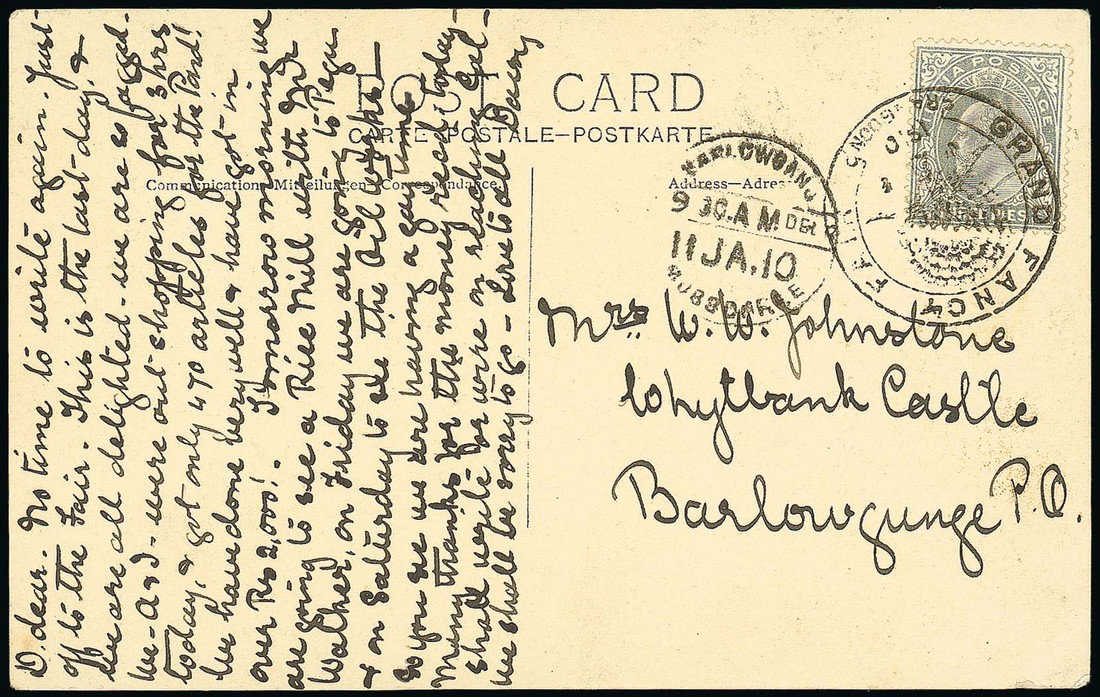 D. dear. No time to write again. Just
off to the Fair. This is the last day, &
we are all delighted - we are so fagged.
we - A and I - were out shopping for 3 hrs
today, & got only 40 articles for the Pard!
We have done very well & have got in
over Rs 2,000!. Tomorrow morning we
are going to see a Rice Mill with Mr
Walker, on Friday we are going to Pegu
& on Satterday to see the Oil works
So you see we are having a gay time
Many thanks for the money recd today
shall write for more on reaching Cal-
we shall be sorry to go - Love to all Danny
POST CARD
CARTE POSTALE—POSTKARTE
Communication Mitteilungen Correspondance.
Address—Adres
INDIA POSTAGE
GRAND FANCY FAIR
BARLOWGANJ
9 30.A.M DEL
11 JA.10
Mrs W. W. Johnstone
Whytbank Castle
Barlowgunge P.O.